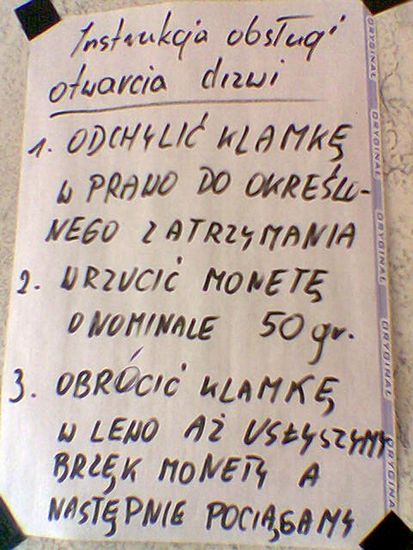 Instrukcja obsługi
otwarcia drzwi
1. ODCHYLIĆ KLAMKĘ
W PRAWO DO OKREŚLO-
NEGO ZATRZYMANIA
2. WRZUCIĆ MONETĘ
O NOMINALE 50 gr.
3. OBRÓCIĆ KLAMKĘ
W LEWO AŻ USŁYSZYMY
BRZĘK MONETY A
NASTĘPNIE POCIĄGAMY
ORYGINAŁ
ORYGINAŁ
ORYGINAŁ
ORYGINAŁ
ORYGINAŁ
ORYGINAŁ